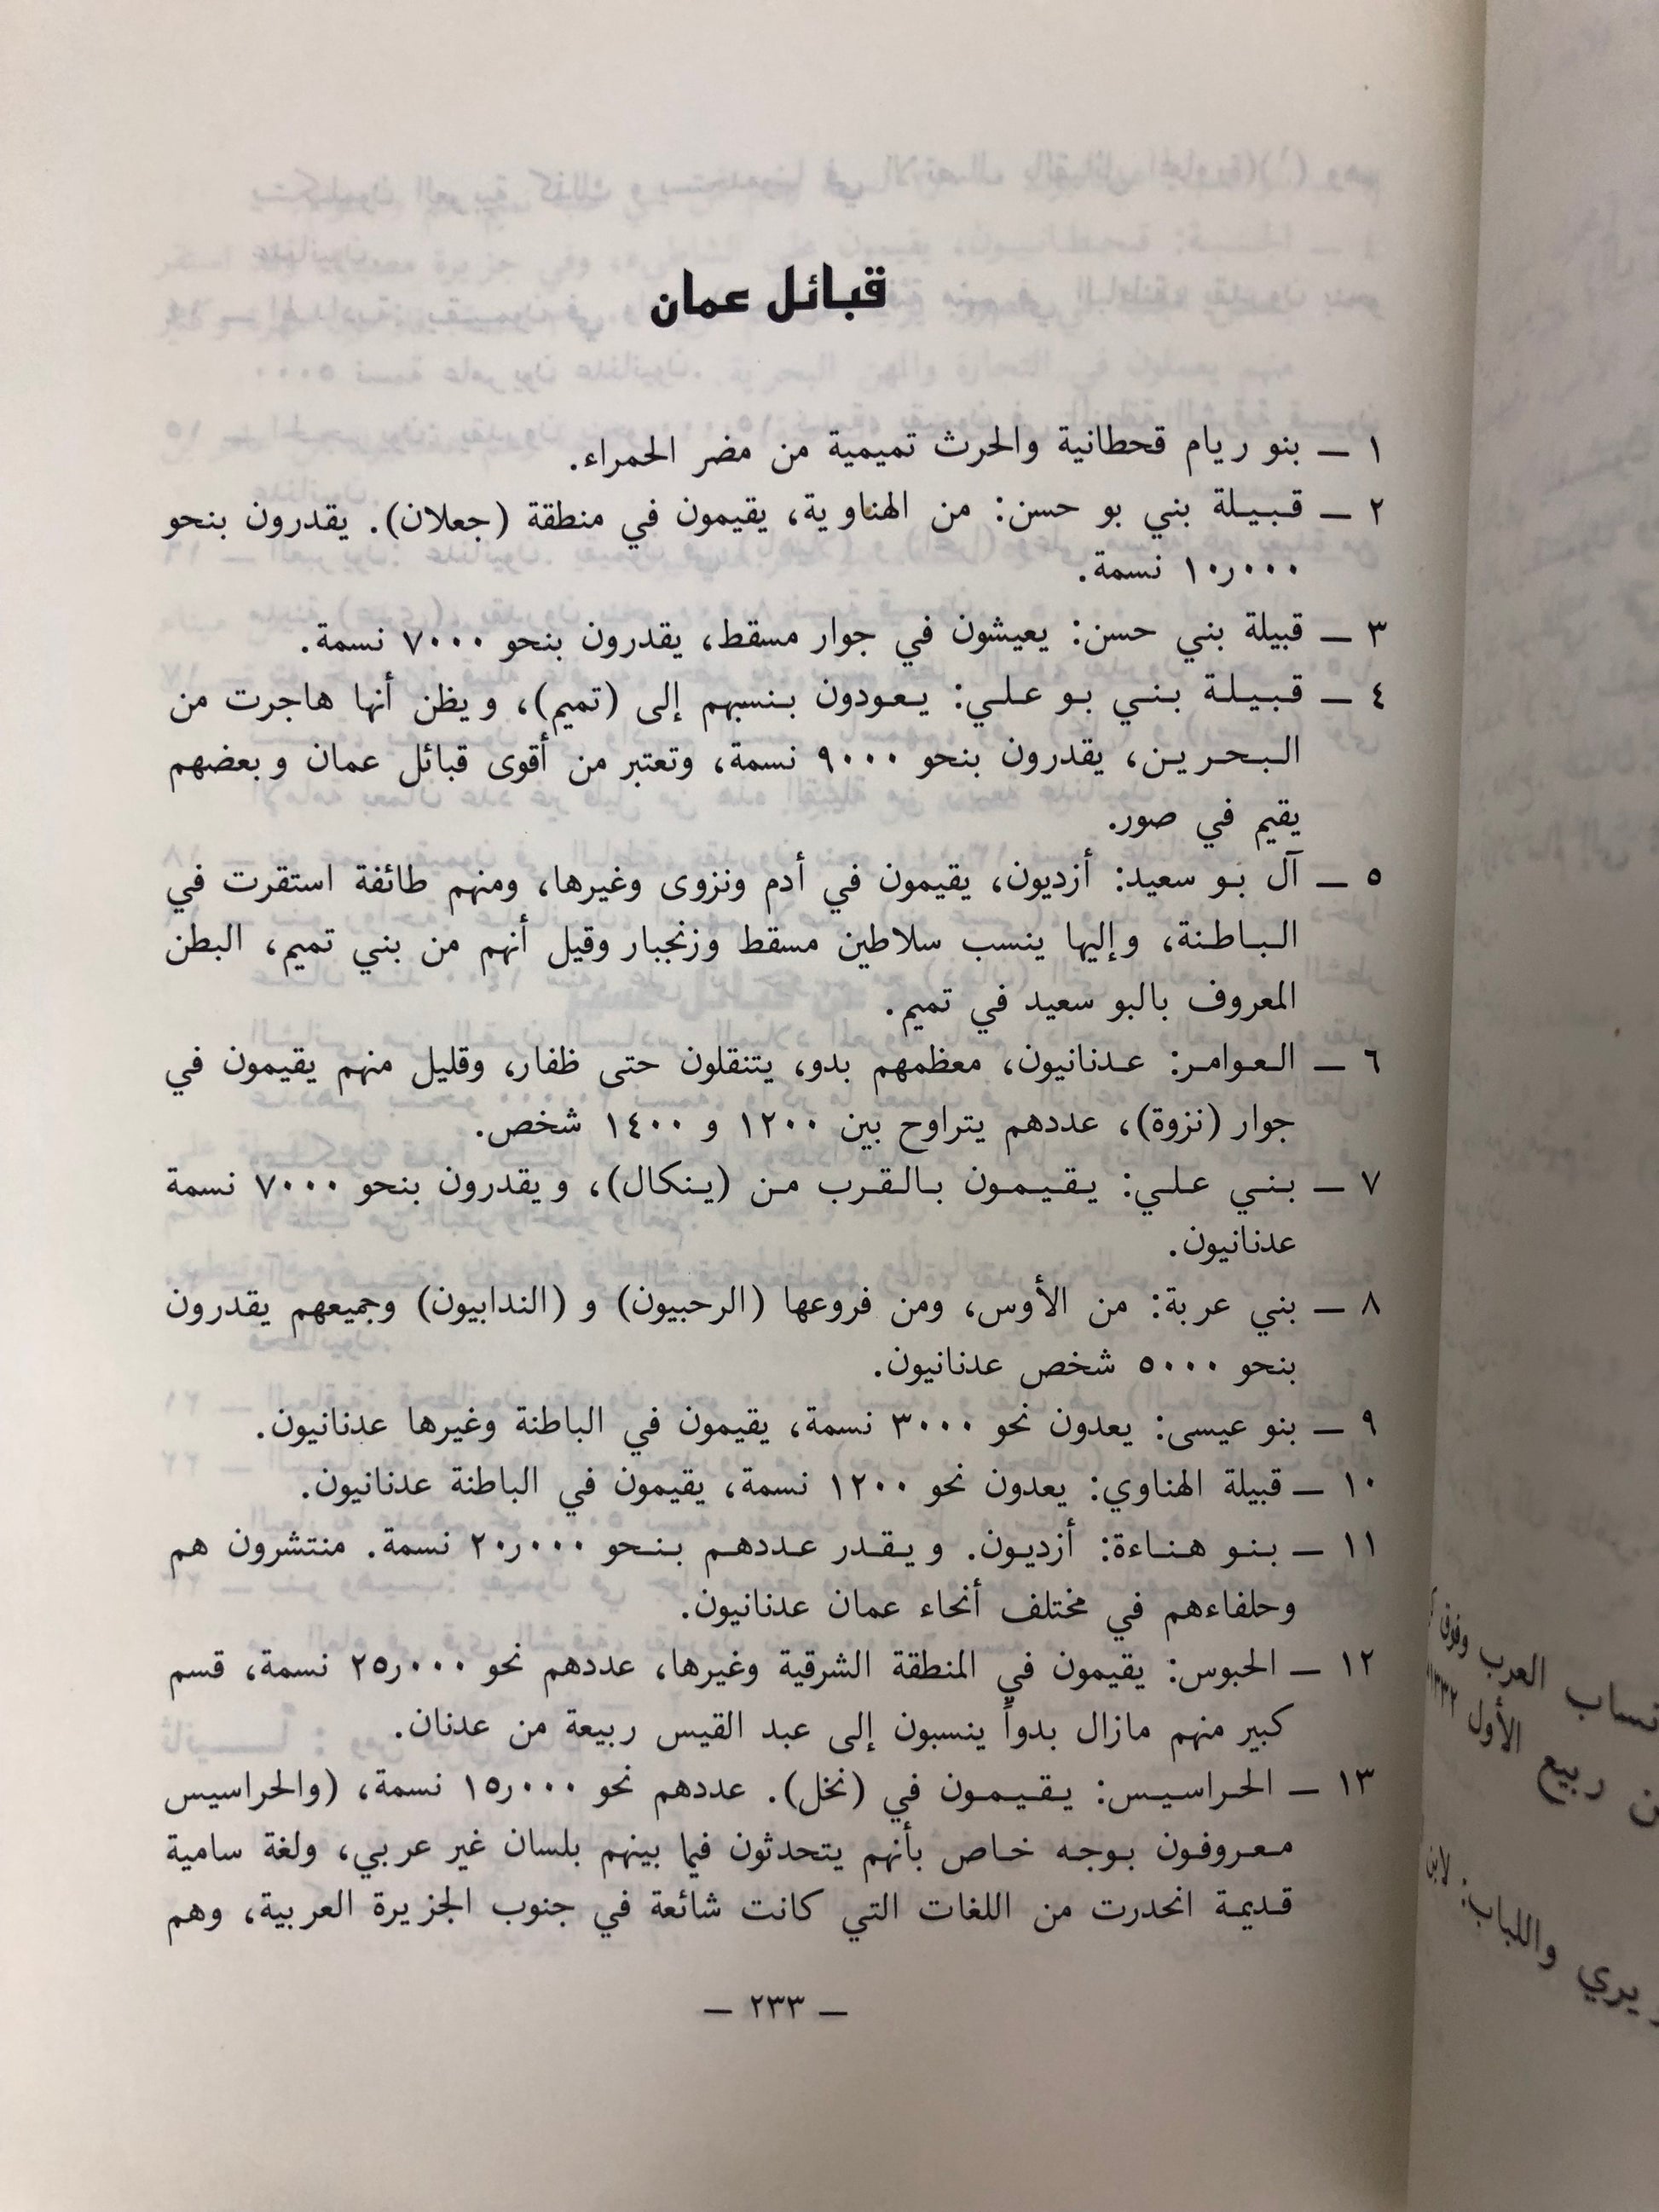 قبائل عمان
١ — بنو ريام قحطانية والحرث تميمية من مضر الحمراء.
٢ — قبيلة بني بو حسن: من الهناوية، يقيمون في منطقة (جعلان). يقدرون بنحو
١٠٫٠٠٠ نسمة.
٣ — قبيلة بني حسن: يعيشون في جوار مسقط، يقدرون بنحو ٧٠٠٠ نسمة.
٤ — قبيلة بني بو علي: يعودون بنسبهم إلى (تميم)، ويظن أنها هاجرت من
البحرين، يقدرون بنحو ٩٠٠٠ نسمة، وتعتبر من أقوى قبائل عمان وبعضهم
يقيم في صور.
٥ — آل بو سعيد: أزديون، يقيمون في أدم ونزوى وغيرها، ومنهم طائفة استقرت في
الباطنة، وإليها ينسب سلاطين مسقط وزنجبار وقيل أنهم من بني تميم، البطن
المعروف بالبو سعيد في تميم.
٦ — العوامر: عدنانيون، معظمهم بدو، يتنقلون حتى ظفار، وقليل منهم يقيمون في
جوار (نزوة)، عددهم يتراوح بين ١٢٠٠ و ١٤٠٠ شخص.
٧ — بني علي: يقيمون بالقرب من (ينكال)، ويقدرون بنحو ٧٠٠٠ نسمة
عدنانيون.
٨ — بني عربة: من الأوس، ومن فروعها (الرحبيون) و (الندابيون) وجميعهم يقدرون
بنحو ٥٠٠٠ شخص عدنانيون.
٩ — بنو عيسى: يعدون نحو ٣٠٠٠ نسمة، يقيمون في الباطنة وغيرها عدنانيون.
١٠ — قبيلة الهناوي: يعدون نحو ١٢٠٠ نسمة، يقيمون في الباطنة عدنانيون.
١١ — بنو هناءة: أزديون. ويقدر عددهم بنحو ٢٠٫٠٠٠ نسمة. منتشرون هم
وحلفاءهم في مختلف أنحاء عمان عدنانيون.
١٢ — الحبوس: يقيمون في المنطقة الشرقية وغيرها، عددهم نحو ٢٥٫٠٠٠ نسمة، قسم
كبير منهم مازال بدواً ينسبون إلى عبد القيس ربيعة من عدنان.
١٣ — الحراسيس: يقيمون في (نخل). عددهم نحو ١٥٫٠٠٠ نسمة، (والحراسيس
معروفون بوجه خاص بأنهم يتحدثون فيما بينهم بلسان غير عربي، ولغة سامية
قديمة انحدرت من اللغات التي كانت شائعة في جنوب الجزيرة العربية، وهم
— ٢٣٣ —
العرب
ربيع الأول
واللباب: